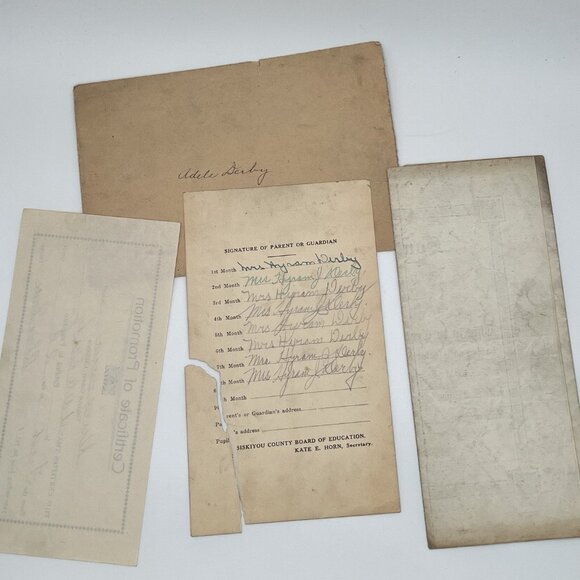 Adele Derby
SIGNATURE OF PARENT OR GUARDIAN
1st Month Mrs Hyram Derby
2nd Month Mrs Hyram J Derby
3rd Month Mrs Hyram Derby
4th Month Mrs Hyram J Derby.
5th Month Mrs Hyram Derby
6th Month Mrs Hyram Derby
7th Month Mrs Hyram J Derby.
8th Month Mrs Hyram J Derby
Month
Parent's or Guardian's address
's address
Pupil
SISKIYOU COUNTY BOARD OF EDUCATION.
KATE E. HORN, Secretary.
Certificate of Promotion